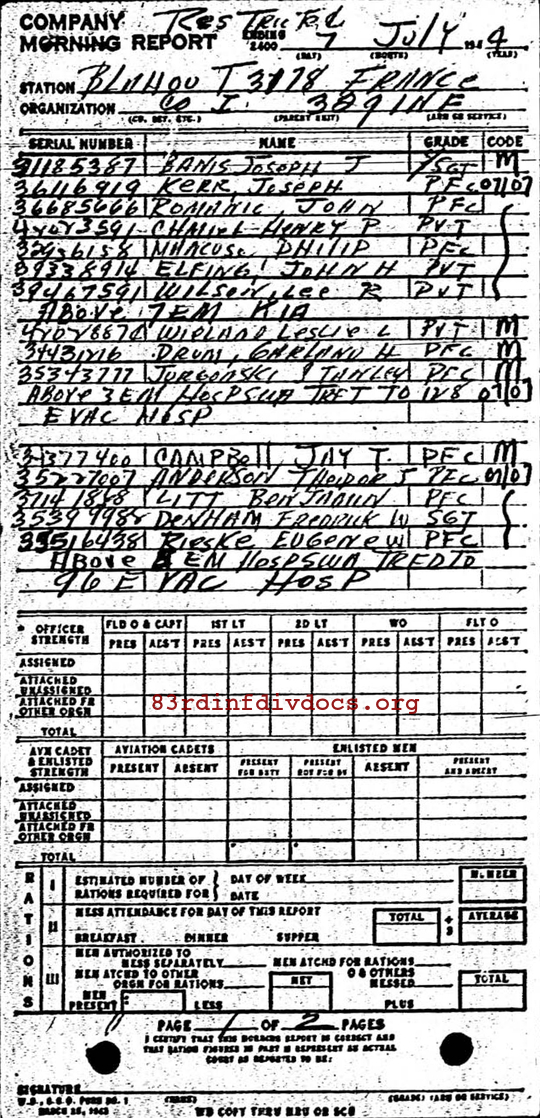 COMPANY Restricted
MORNING REPORT ENDING 2400 7 (DAY) JULY (MONTH) 194 4 (YEAR)
STATION T 3178 FRANCE
ORGANIZATION CO I 329 INF
(CO. DET. ETC.) (PARENT UNIT) (ARM OR SERVICE)
SERIAL NUMBER NAME GRADE CODE
31185387 BANIS Joseph J SGT M
36116919 KERR, Joseph PFC 07107
36685666 ROMANIC, JOHN PFC
HENRY P PVT
PHILIP PFC
39338914 ELFING, JOHN H PVT
39467591 WILSON, Lee R PVT
Above 7EM KIA
WIELAND Leslie L PVT M
DRUM, GARLAND H PFC M
35343777 PFC M
ABOVE 3 EM HospSWA TRFT TO 128 07107
EVAC HOSP
34377400 CAMPBell JAY T. PFC M
35227007 ANDERSON J PFC 07107
LITT BENJAMIN PFC
DENHAM FREDRICK W SGT
35516438 Rieske EUGENE W PFC
Above EM HOSPSWA
96 EVAC HOSP
* OFFICER STRENGTH FLD O & CAPT 1ST LT 2D LT WO FLT O
PRES ABS'T PRES ABS'T PRES ABS'T PRES ABS'T PRES ABS'T
ASSIGNED
ATTACHED UNASSIGNED
ATTACHED FR OTHER ORGN
83rdinfdivdocs.org
TOTAL
AVN CADET & ENLISTED STRENGTH AVIATION CADETS ENLISTED MEN
PRESENT ABSENT PRESENT FOR DUTY PRESENT NOT FOR DY ABSENT PRESENT AND ABSENT
ASSIGNED
ATTACHED UNASSIGNED
ATTACHED FR OTHER ORGN
TOTAL
RATIONS
I ESTIMATED NUMBER OF RATIONS REQUIRED FOR } DAY OF WEEK DATE NUMBER
II MESS ATTENDANCE FOR DAY OF THIS REPORT TOTAL ÷ 3 AVERAGE
BREAKFAST DINNER SUPPER
III MEN AUTHORIZED TO MESS SEPARATELY MEN ATCHD FOR RATIONS
MEN ATCHD TO OTHER ORGN FOR RATIONS NET O & OTHERS MESSED TOTAL
MEN PRESENT LESS PLUS
PAGE 1 OF 2 PAGES
I CERTIFY THAT THIS MORNING REPORT IS CORRECT AND
THAT RATION FIGURES IN PART III REPRESENT AN ACTUAL
COUNT AS REPORTED TO ME:
SIGNATURE
W.D., A.G.O. FORM NO. 1 (NAME) (GRADE) (ARM OR SERVICE)
MARCH 25, 1943 WD COPY THRU MRU OR SCU